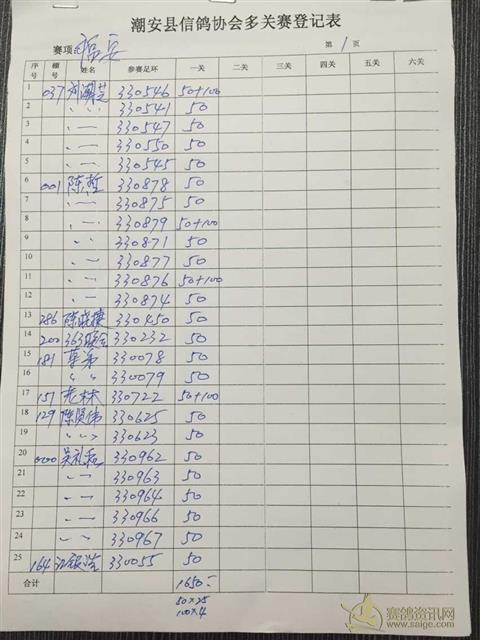 潮安县信鸽协会多关赛登记表
赛项: 福安 第 1 页
序号 棚号 姓名 参赛足环 一关 二关 三关 四关 五关 六关
1 037 330546 50+100
2 〃 〃 330541 50
3 〃 一 330547 50
4 〃 一 330550 50
5 〃 一 330545 50
6 001 陈哲 330878 50
7 〃 一 330875 50
8 〃 一 330879 50+100
9 〃 〃 330871 50
10 〃 一 330877 50
11 〃 一 330876 50+100
12 〃 一 330874 50
13 286 陈晓 330450 50
14 200 363 330232 50
15 181 330078 50
16 〃 〃 330079 50
17 151 老林 330722 50+100
18 129 陈贤伟 330625 50
19 〃 〃 330623 50
20 吴礼 330962 50
21 〃 一 330963 50
22 〃 一 330964 50
23 〃 一 330966 50
24 〃 一 330967 50
25 164 江银浩 330055 50
合计 1650-
50×25
100×4
赛鸽资讯网
www.saige.com